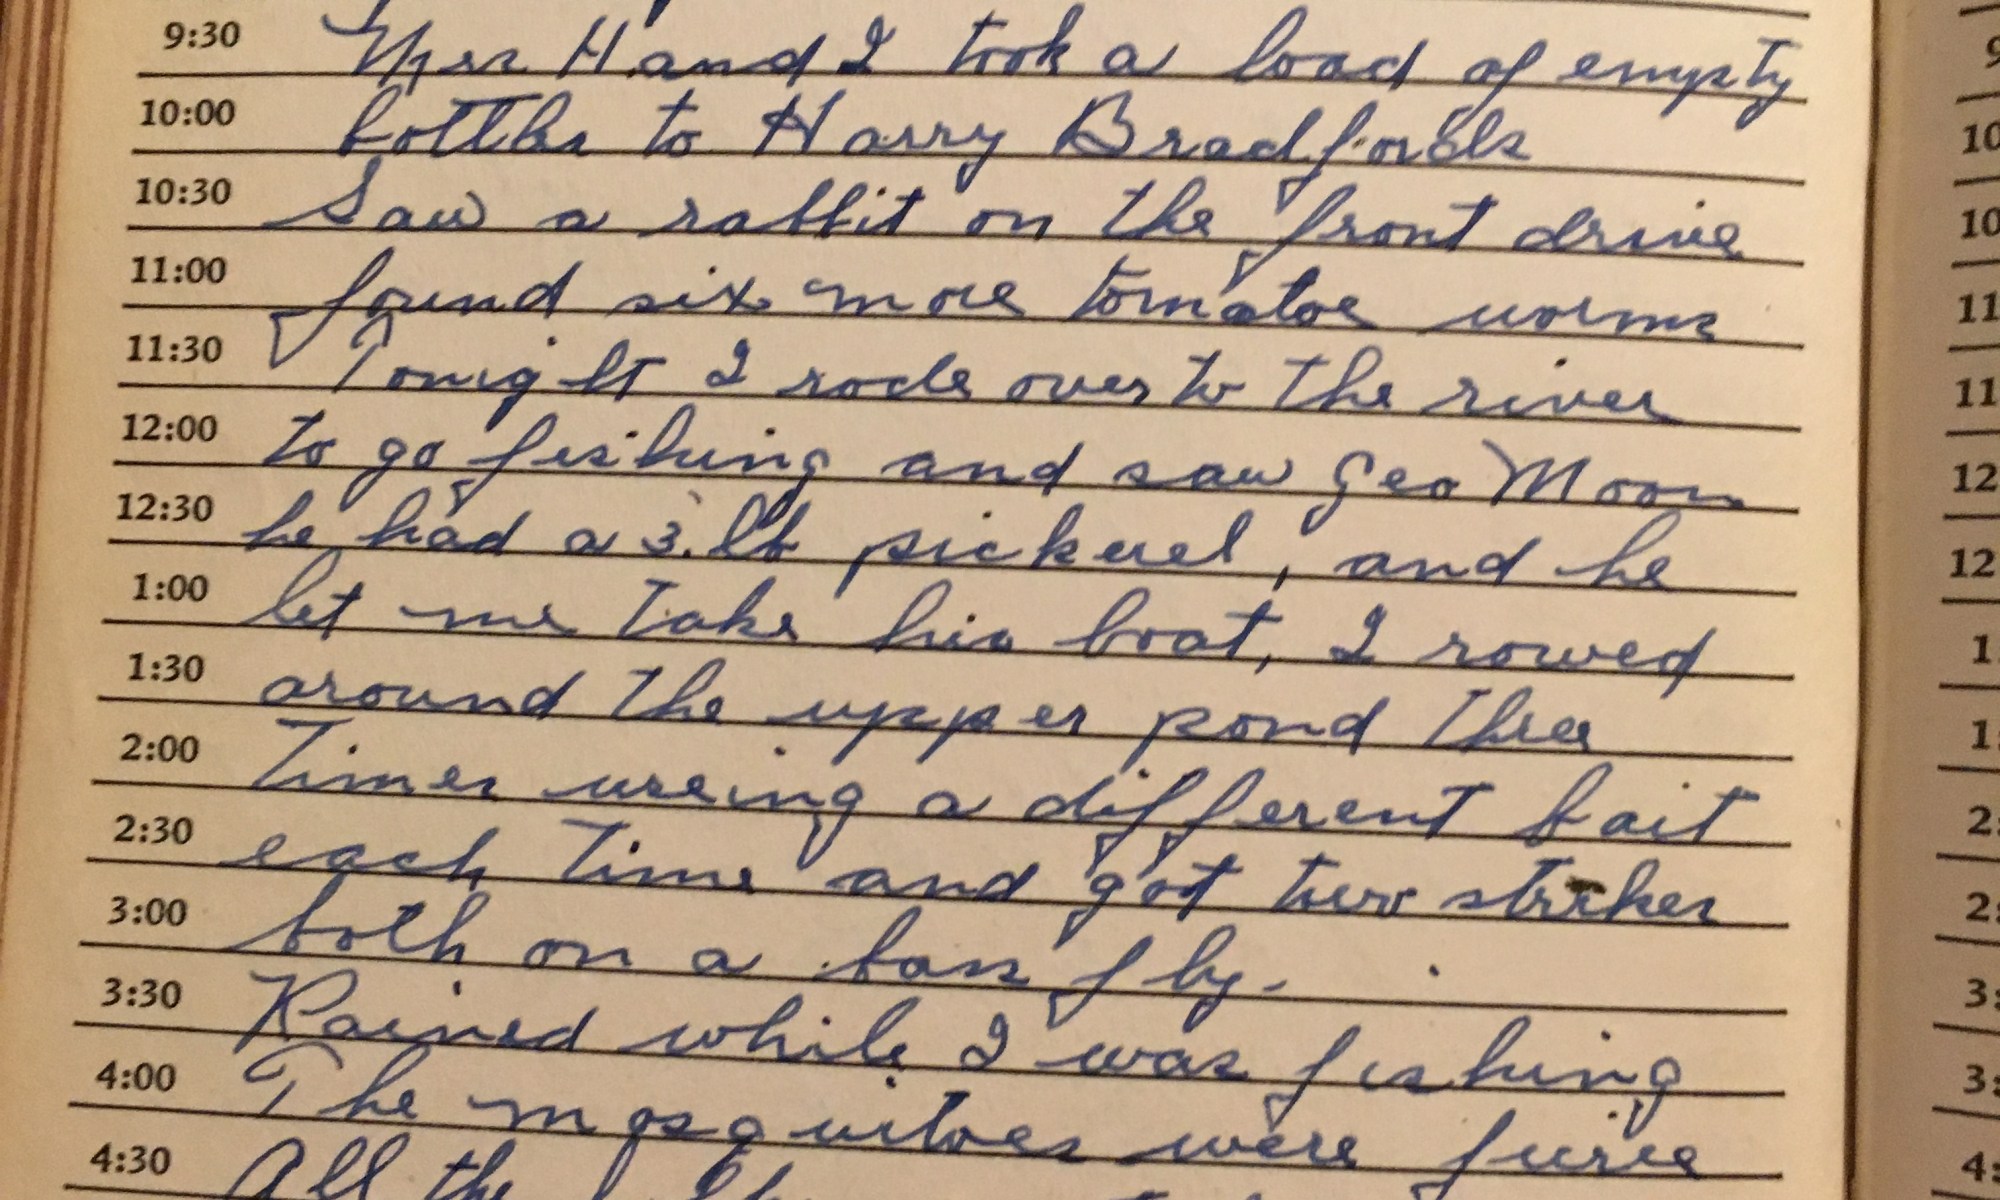 9:30 Mrs H. and I took a load of empty
10:00 bottles to Harry Bradfords
10:30 Saw a rabbit on the front drive
11:00 found six more tomatoe worms
11:30 Tonight I rode over to the river
12:00 to go fishing and saw Geo Moon
12:30 he had a 3. lb pickerel, and he
1:00 let me take his boat, I rowed
1:30 around the upper pond three
2:00 Times useing a different bait
2:30 each time and got two strikes
3:00 both on a bass fly.
3:30 Rained while I was fishing
4:00 The mosquitoes were fierce
4:30 All the
9
10
10
11
11
12
12
1
1
2
2
3
3
4